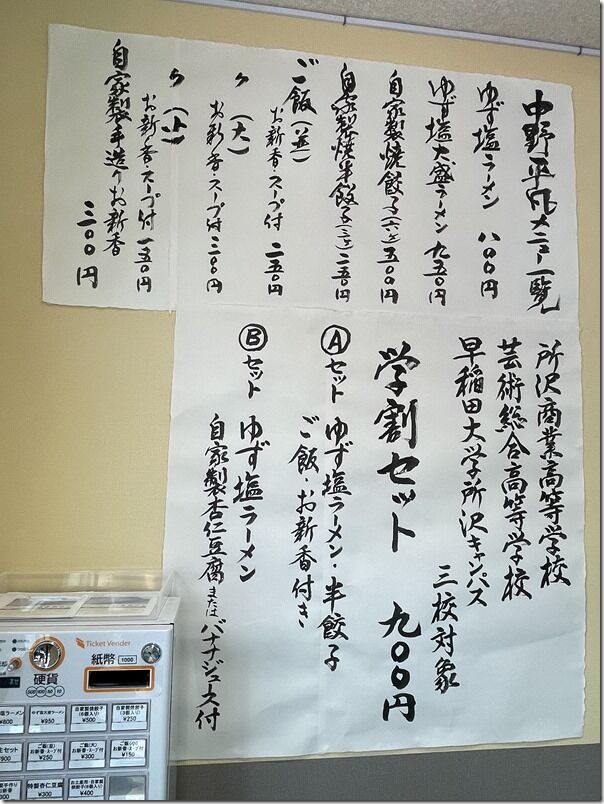 中野平凡メニュー一覧
ゆず塩ラーメン 八〇〇円
ゆず塩大盛ラーメン 九五〇円
自家製焼餃子(六ヶ)五〇〇円
自家製焼半餃子(三ヶ)二五〇円
ご飯(並)
お新香・スープ付 二五〇円
〃(大)
お新香・スープ付 三〇〇円
〃(小)
お新香・スープ付 一五〇円
自家製手造りお新香
三〇〇円
所沢商業高等学校
芸術総合高等学校
早稲田大学所沢キャンパス
三校対象
学割セット 九〇〇円
Ⓐセット ゆず塩ラーメン・半餃子
ご飯・お新香付き
Ⓑセット ゆず塩ラーメン
自家製杏仁豆腐またはバナナジュース付
Ticket Vender
硬貨
500 100 50 10
紙幣 1000
塩ラーメン
¥800
ゆず塩大盛ラーメン
¥950
自家製焼餃子
(6個入り)
¥500
自家製焼餃子
(3個入り)
¥250
生セット
¥900
ご飯(並)
お新香・スープ付
¥250
ご飯(大)
お新香・スープ付
¥300
ご飯(小)
お新香・スープ付
¥150
手作り
お新香
¥300
特製杏仁豆腐
¥300
お土産用・自家製
焼餃子(6個入り)
¥400